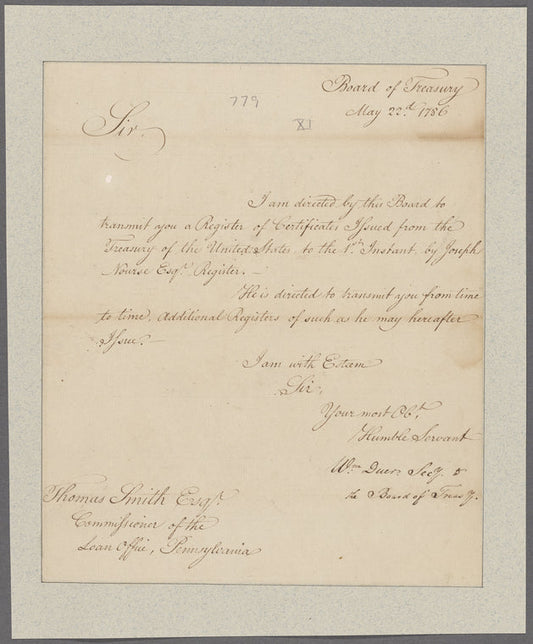 Board of Treasury
May 22.d 1786
779
XI
Sir,
I am directed by this Board to
transmit you a Register of Certificates Issued from the
Treasury of the United States to the 1.st Instant by Joseph
Nourse Esq.r Register. —
He is directed to transmit you from time
to time, Additional Registers of such as he may hereafter
Issue. —
I am with Esteem
Sir,
Your most Ob.t
Humble Servant
Wm Duer Secy. to
the Board of Treasy.
Thomas Smith Esq.r
Commissioner of the
Loan Office, Pennsylvania